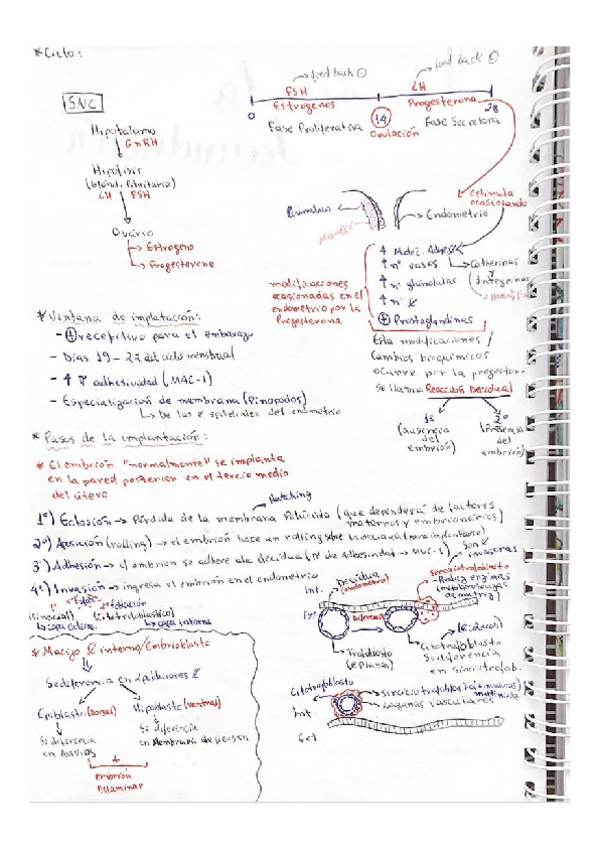 * Ciclo:
feed back ⊖
feed back ⊖
FSH
LH
Estrógenos
Progesterona
0
14
28
Fase Proliferativa
Ovulación
Fase Secretora
S.N.C
Hipotalamo
GnRH
Hipofisis
(Glánd. Pituitaria)
LH FSH
Ovario
Estrogeno
Progesterona
Estimula
ocasionando
Perimetrio
Endometrio
↑ nº vasos
↑ nº glándulas
Prostaglandinas
modificaciones
ocasionadas en el
endometrio por la
Progesterona
Esta modificaciones /
Cambios bioquimicos
ocurre por la progester.
Se llama Reacción Decidual
1º
(ausencia
del
embrión)
2º
(Presencia
del
embrión)
* Ventana de implatación:
- ⊕ receptivo para el embarazo
- Dias 19 - 22 del ciclo menstrual
adhesividad (MAC-1)
- Especialización de membrana (Pinopodos)
epiteliales del endometrio
* Pasos de la implantación:
* El embrión "normalmente" se implanta
en la pared posterior en el tercio medio
del útero
Hatching
1º) Eclosión → Pérdida de la membrana Pelúcida (que dependerá de factores
maternos y embrionarios)
2º) Aposición (rolling) → el embrión hace un rolling sobre la decidua (para implantarse)
3º) Adhesión → el embrion se adhere a la decidua
4º) Invasión → ingresa el embrión en el endometrio
son
invasoras
capa externa
capa interna
Int.
Decidua
(endometrio)
Ext
Diferencia
Sinciciotrofoblasto
Trofoblasto
Citotrofoblasto
Se diferencia
en sincitiotrofob.
* Macizo interno/Embrioblasto
Se diferencia en 2 poblaciones
Epiblasto (Dorsal)
Hipoblasto (ventral)
Se diferencia
en
Se diferencia
en Membrana de
+
embrión
Bilaminar
Citotrofoblasto
Int.
Lagunas vasculares
Ext